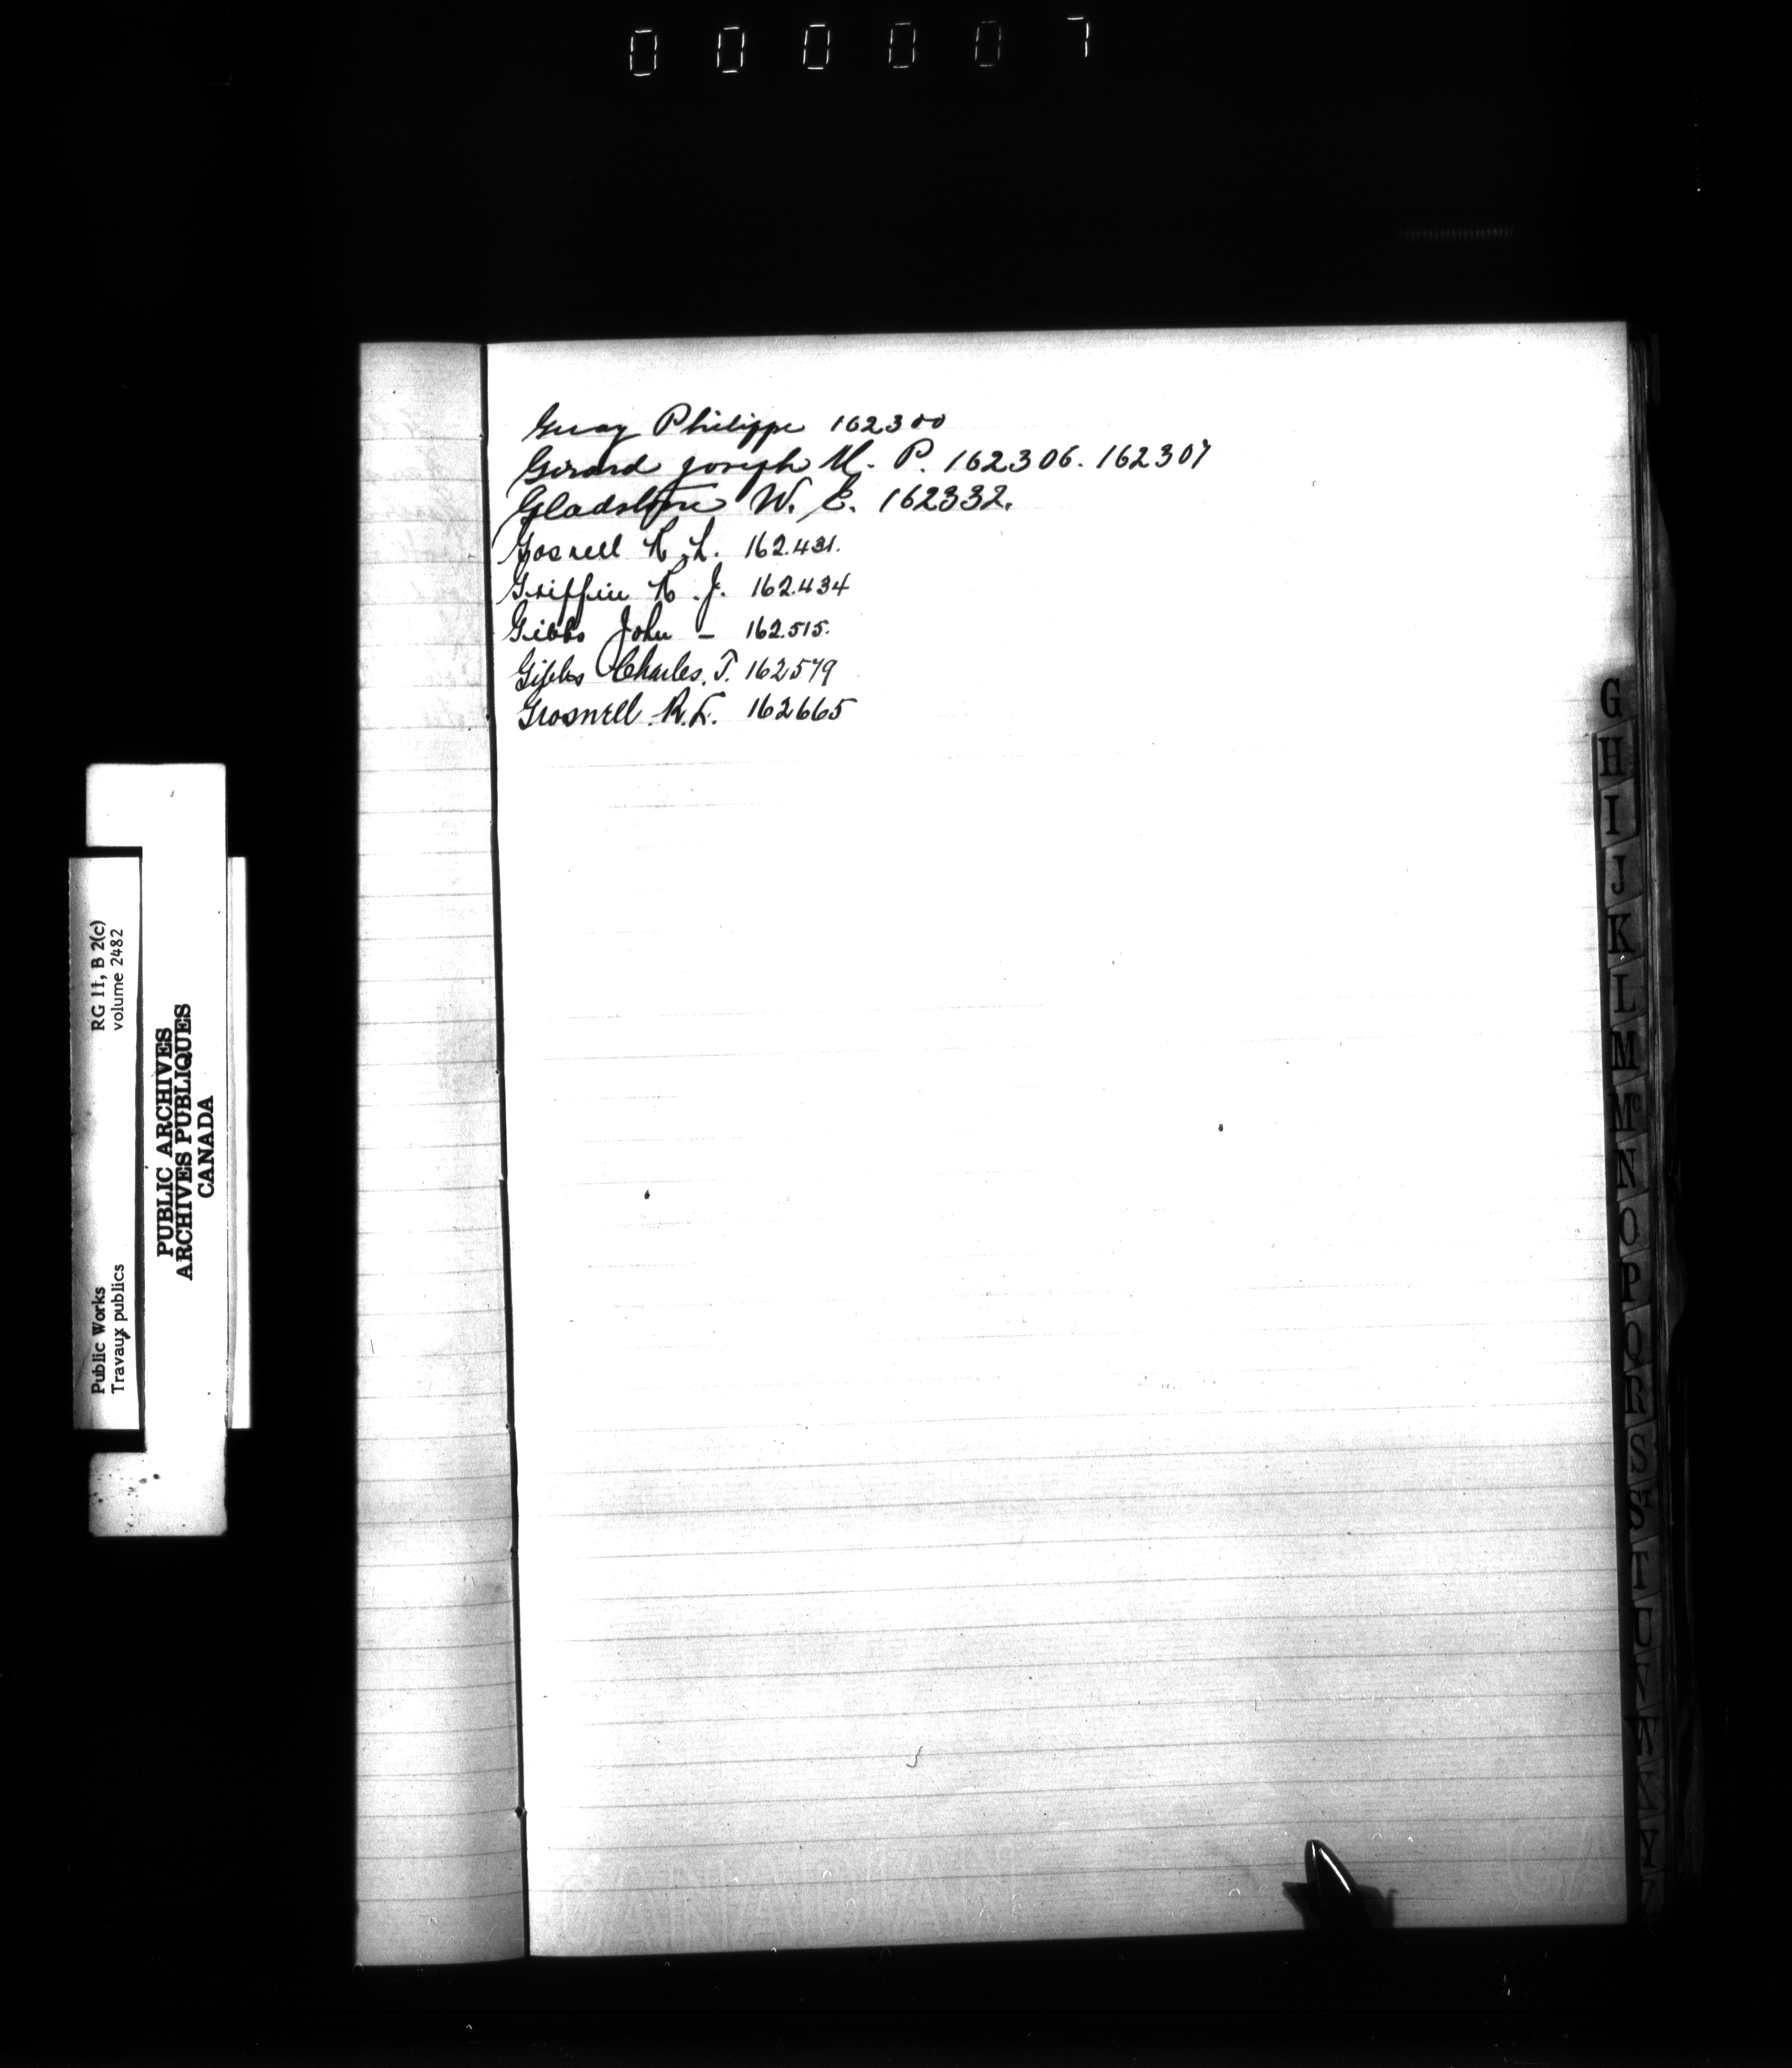 000007
Guay Philippe 162300
Girard Joseph M. P. 162306. 162307
Gladstone W. E. 162332.
Gosnell R. L. 162.431.
Griffin R. J. 162.434
Gibbs John - 162.515.
Gibbs Charles. T. 162579
Grosnell. R. L. 162665
RG 11, B 2(c)
volume 2482
Public Works
Travaux publics
PUBLIC ARCHIVES
ARCHIVES PUBLIQUES
CANADA
G
H
I
J
K
L
M
Mc
N
O
P
Q
R
S
St
T
U
V
W
X
Y